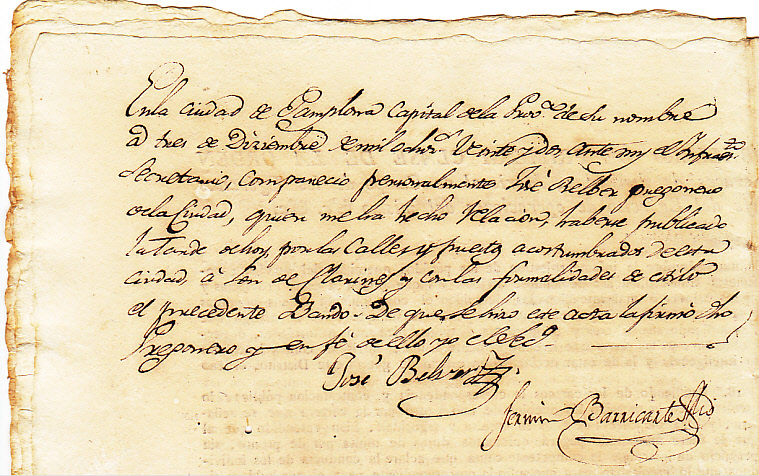 En la ciudad de Pamplona Capital de la Prov.ª de su nombre
a tres de Diziembre de mil ochoz.s Veinte y dos, ante my el Infraes.to
Secretario, comparecio personalmente José Belber pregonero
de la Ciudad, quien me ha hecho relacion, haberse publicado
la tarde de hoy, por las Calles y puestos acostumbrados de esta
ciudad, à son de Clarines y con las formalidades de estilo
el precedente Bando. De que se hizo este acta la firmó dho
Pregonero y en fé de ello yo el Sec.o
José Belver
Fermin Barricarte Srio